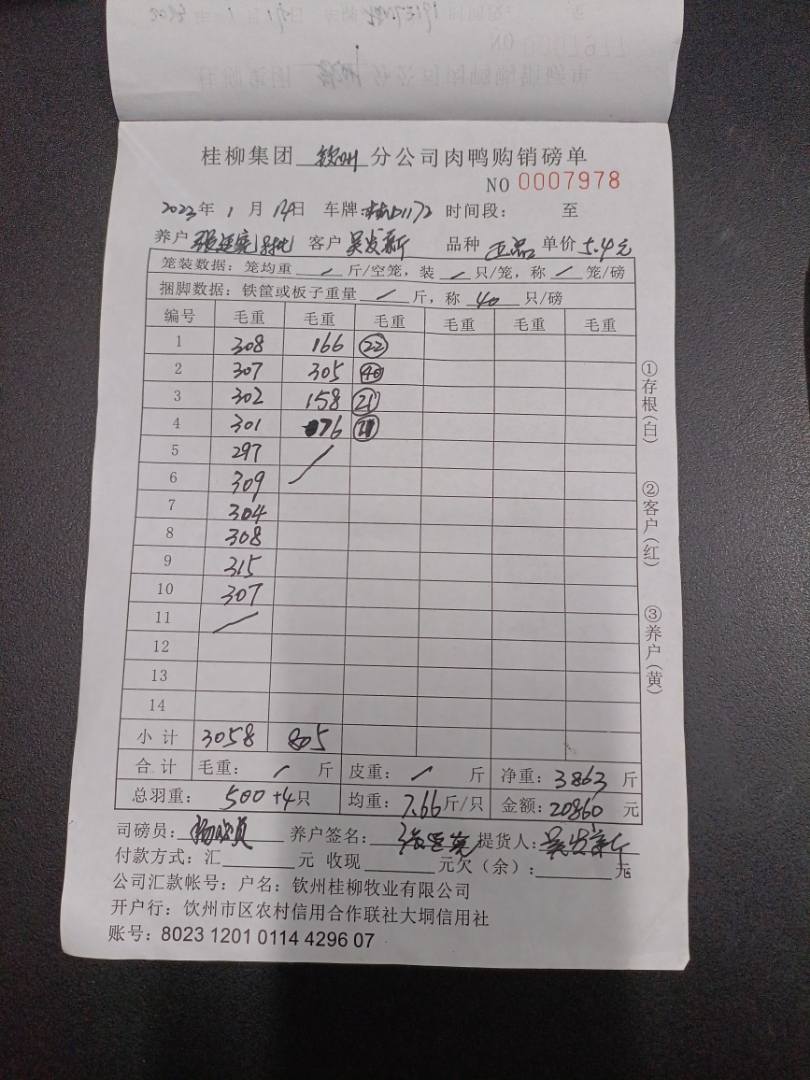 桂柳集团 钦州 分公司肉鸭购销磅单
NO 0007978
2023年 1 月 14日 车牌: 1172 时间段: 至
养户 张廷亮 客户 吴发新 品种 正品 单价 5.4元
笼装数据: 笼均重 / 斤/空笼, 装 / 只/笼, 称 / 笼/磅
捆脚数据: 铁筐或板子重量 / 斤, 称 40 只/磅
编号 毛重 毛重 毛重 毛重 毛重 毛重
1 308 166 22
2 307 305 40
3 302 158 21
4 301 76
5 297 /
6 309
7 304
8 308
9 315
10 307
11 /
12
13
14
小计 3058 805
合计 毛重: / 斤 皮重: / 斤 净重: 3863 斤
总羽重: 500+4只 均重: 7.66斤/只 金额: 20860 元
司磅员: 养户签名: 张廷亮 提货人: 吴发新
付款方式: 汇 元 收现 元欠(余): 元
公司汇款帐号: 户名: 钦州桂柳牧业有限公司
开户行: 钦州市区农村信用合作联社大垌信用社
账号: 8023 1201 0114 4296 07
①存根(白)
②客户(红)
③养户(黄)